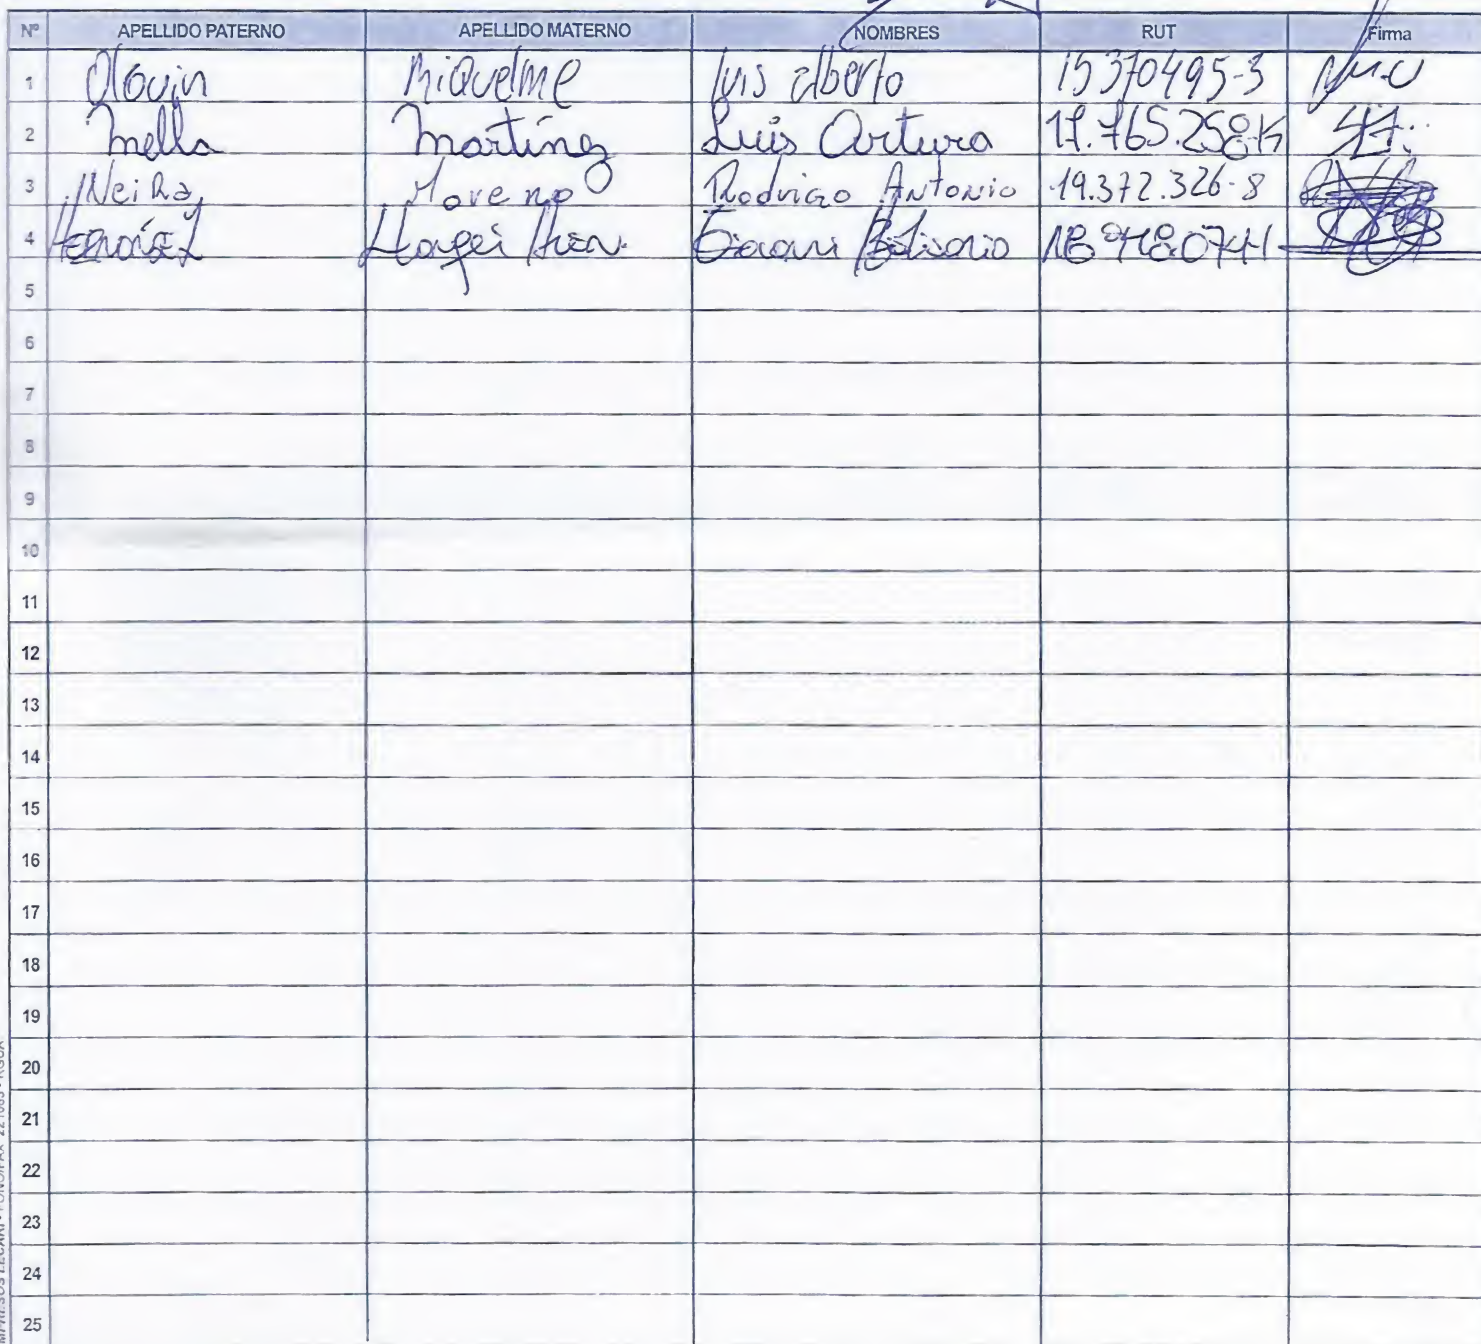 Nº APELLIDO PATERNO APELLIDO MATERNO NOMBRES RUT Firma
1 Olguin Riquelme luis alberto 15370495-3
2 Mella Martínez Luis Arturo 17.765.258-K
3 Neira Moreno Rodrigo Antonio 19.372.326-8
4
5
6
7
8
9
10
11
12
13
14
15
16
17
18
19
20
21
22
23
24
25